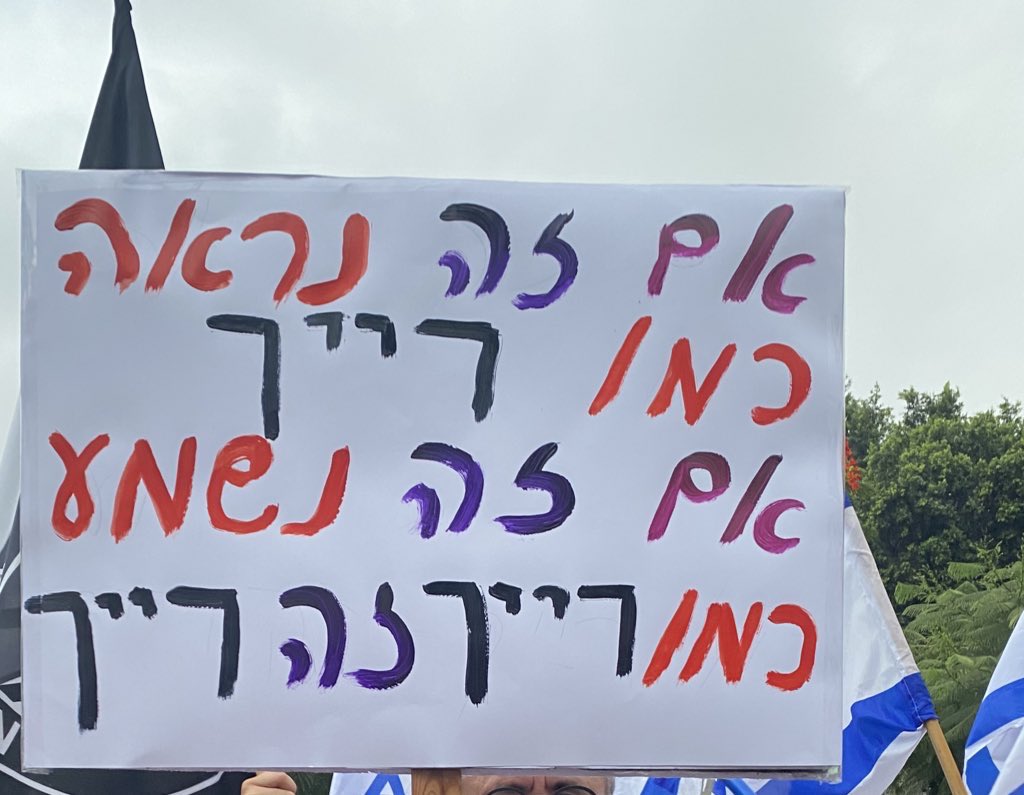 אם זה נראה
כמו רייך
אם זה נשמע
כמו רייך זה רייך